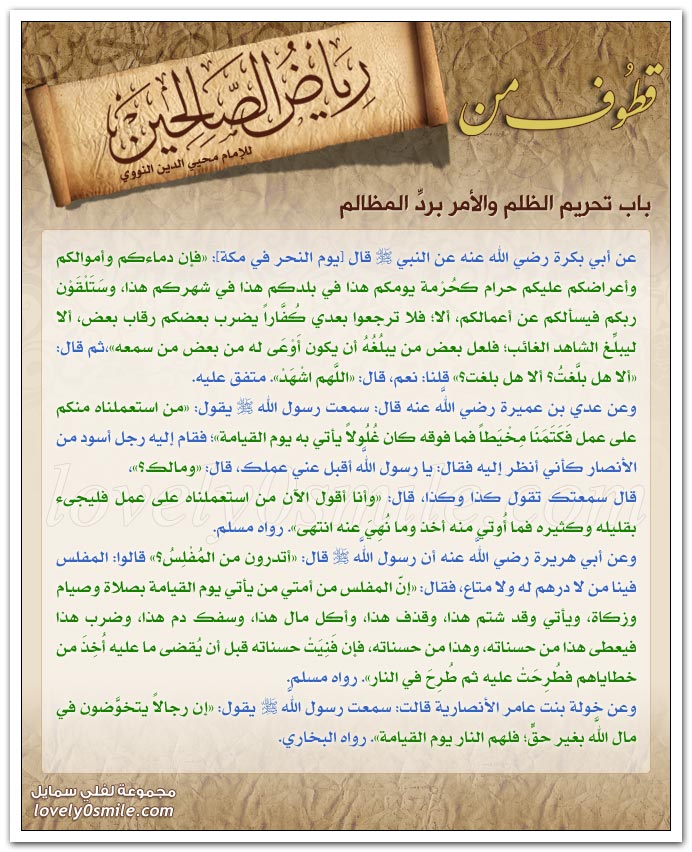 قطوف من
رياض الصالحين
للإمام محيي الدين النووي
باب تحريم الظلم والأمر بردِّ المظالم
عن أبي بكرة رضي الله عنه عن النبي ﷺ قال [يوم النحر في مكة]: «فإن دماءكم وأموالكم
وأعراضكم عليكم حرام كحُرْمة يومكم هذا في بلدكم هذا في شهركم هذا، وسَتَلْقَوْن
ربكم فيسألكم عن أعمالكم، ألا؛ فلا ترجعوا بعدي كُفَّاراً يضرب بعضكم رقاب بعض، ألا
ليبلِّغ الشاهد الغائب؛ فلعل بعض من يبلُغُهُ أن يكون أَوْعَى له من بعض من سمعه»،ثم قال:
«ألا هل بلَّغتُ؟ ألا هل بلغت؟» قلنا: نعم، قال: «اللَّهم اشْهَدْ». متفق عليه.
وعن عدي بن عميرة رضي الله عنه قال: سمعت رسول الله ﷺ يقول: «من استعملناه منكم
على عمل فَكَتَمَنَا مِخْيَطاً فما فوقه كان غُلُولاً يأتي به يوم القيامة»؛ فقام إليه رجل أسود من
الأنصار كأني أنظر إليه فقال: يا رسول الله أقبل عني عملك، قال: «ومالك؟»،
قال سمعتك تقول كذا وكذا، قال: «وأنا أقول الآن من استعملناه على عمل فليجىء
بقليله وكثيره فما أُوتي منه أخذ وما نُهِيَ عنه انتهى». رواه مسلم.
وعن أبي هريرة رضي الله عنه أن رسول الله ﷺ قال: «أتدرون من المُفْلِسُ؟» قالوا: المفلس
فينا من لا درهم له ولا متاع، فقال: «إنّ المفلس من أمتي من يأتي يوم القيامة بصلاة وصيام
وزكاة، ويأتي وقد شتم هذا، وقذف هذا، وأكل مال هذا، وسفك دم هذا، وضرب هذا
فيعطى هذا من حسناته، وهذا من حسناته، فإن فَنِيَتْ حسناته قبل أن يُقضى ما عليه أُخِذَ من
خطاياهم فطُرِحَتْ عليه ثم طُرِحَ في النار». رواه مسلم.
وعن خولة بنت عامر الأنصارية قالت: سمعت رسول الله ﷺ يقول: «إن رجالاً يتخوَّضون في
مال الله بغير حقٍّ؛ فلهم النار يوم القيامة». رواه البخاري.
lovely0smile.com
مجموعة لفلي سمايل
lovely0smile.com